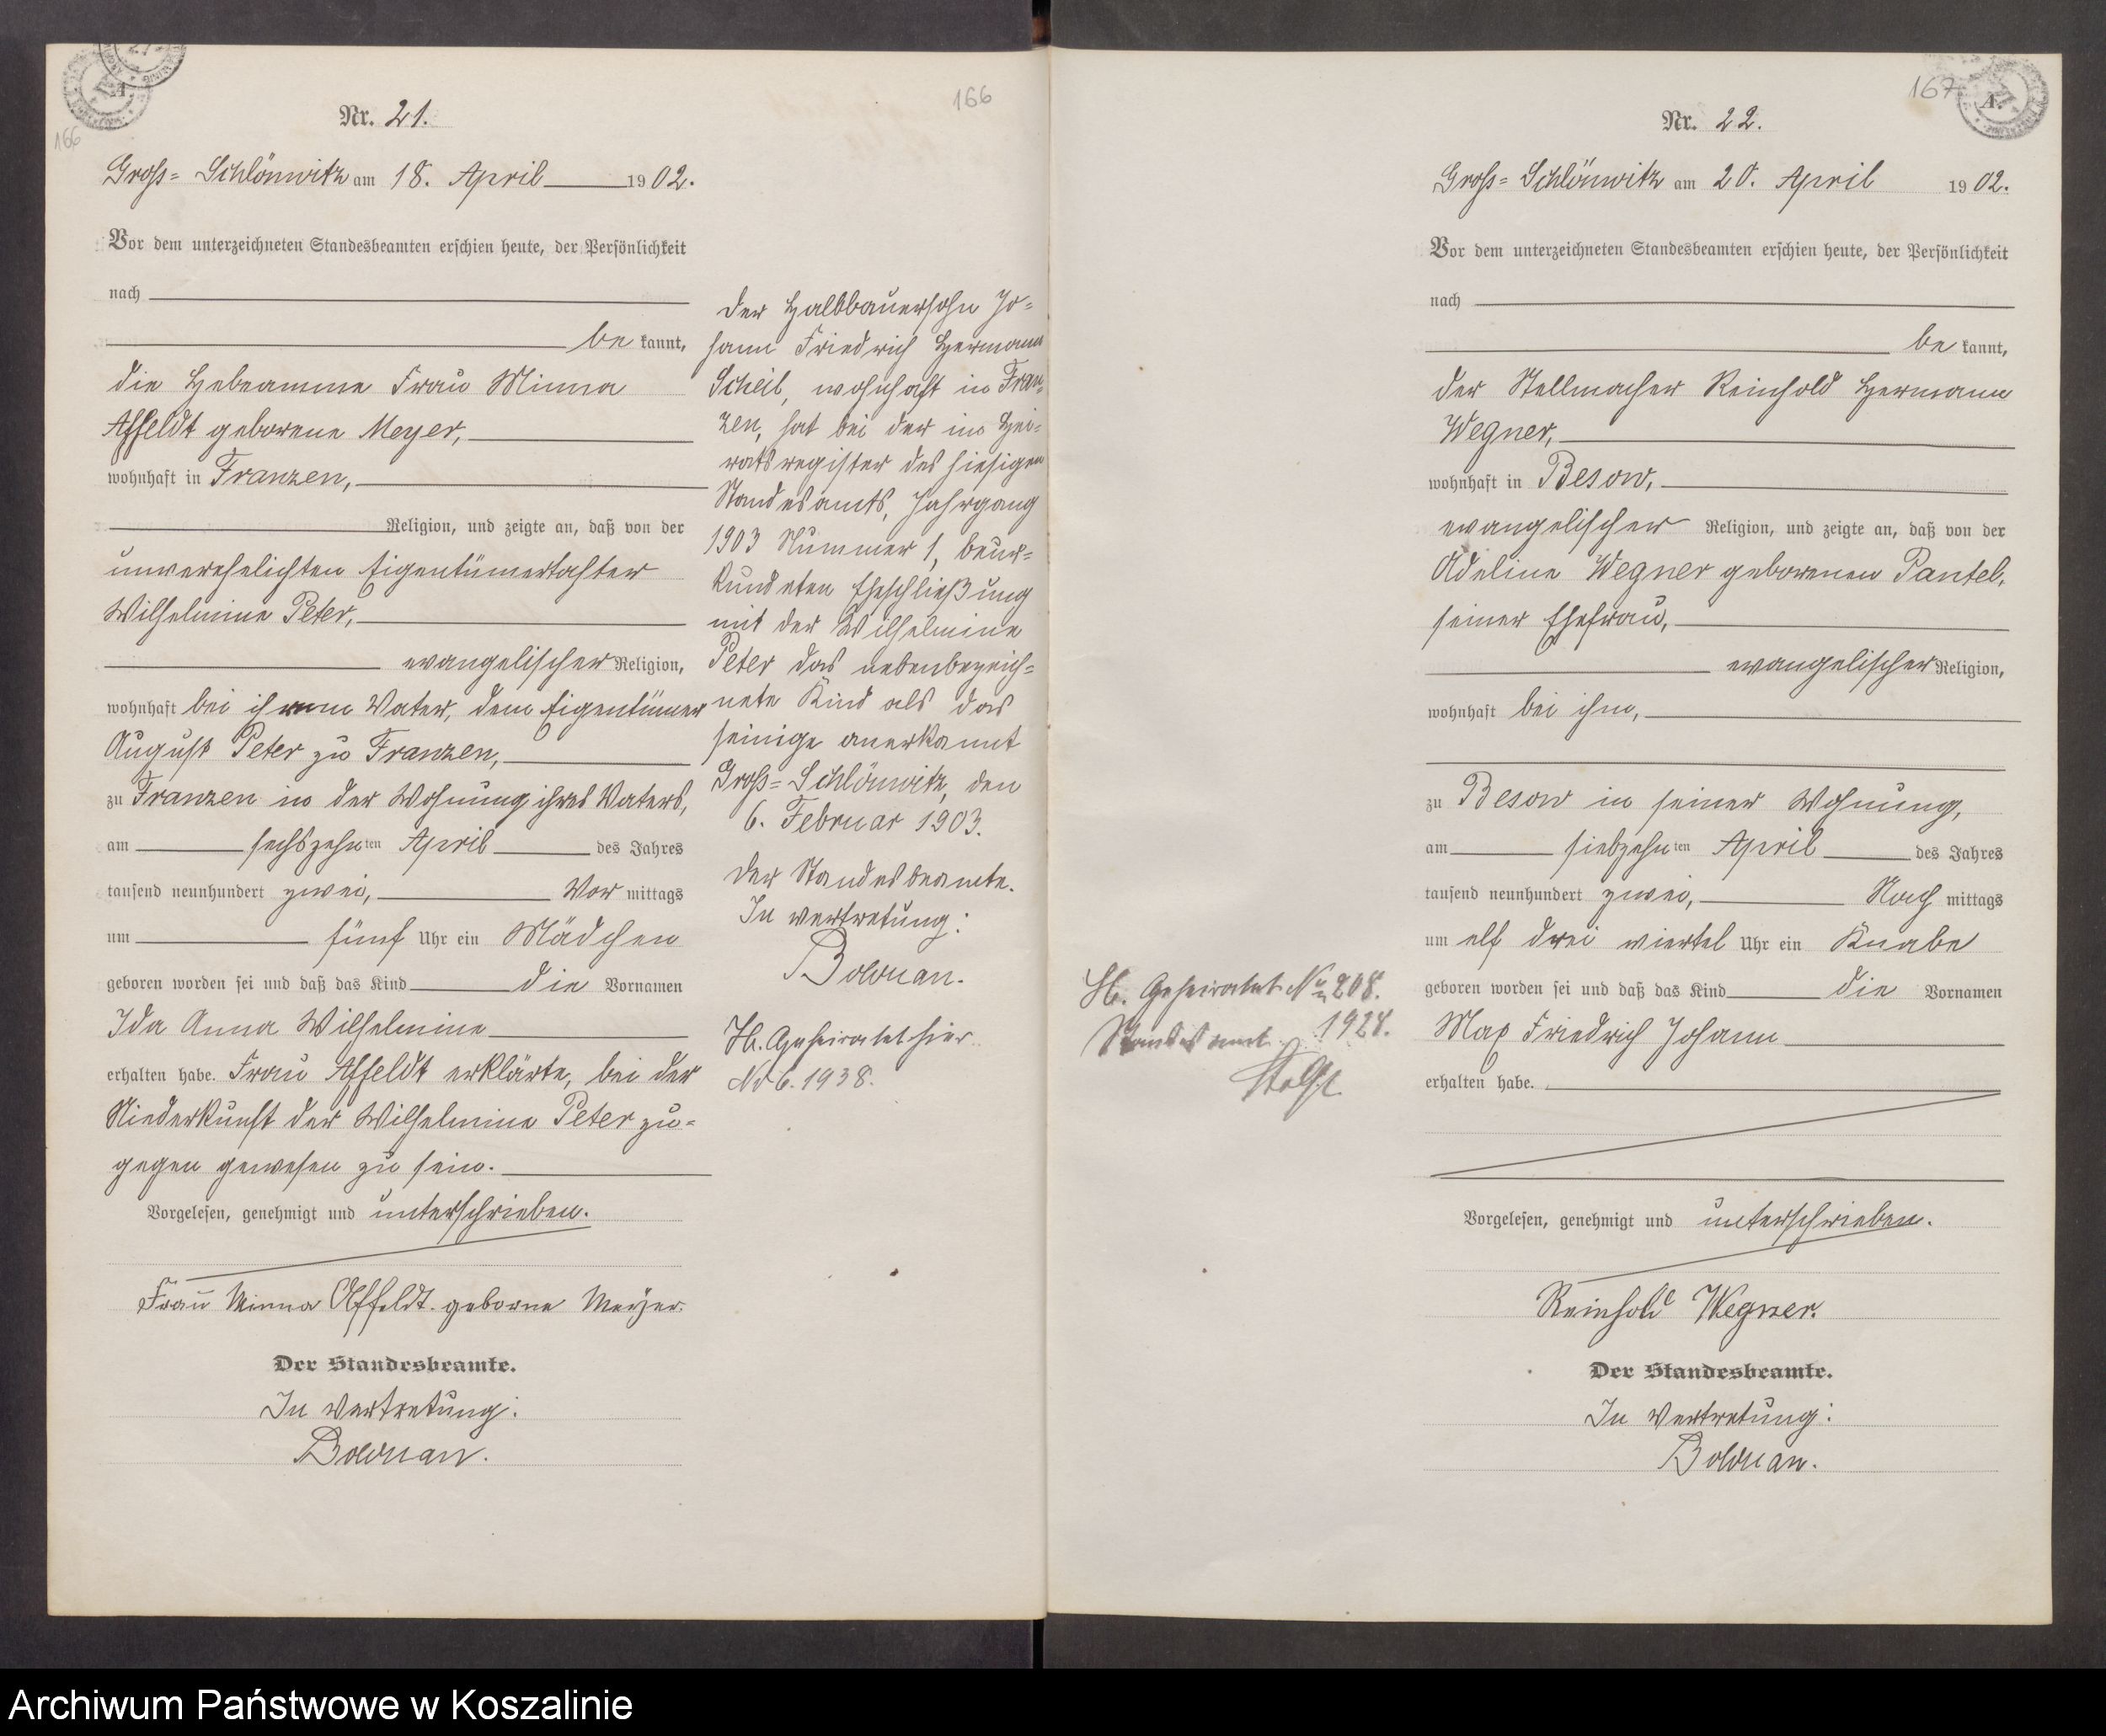 166
Nr. 21.
Groß= Schlönwitz am 18. April 1902.
Vor dem unterzeichneten Standesbeamten erschien heute, der Persönlichkeit
nach
be kannt,
die Hebeamme Frau Minna
Affeldt geborene Meyer,
wohnhaft in Franzen,
Religion, und zeigte an, daß von der
unverehelichten Eigentümertochter
Wilhelmine Peter,
evangelischer Religion,
wohnhaft bei ihrem Vater, dem Eigentümer
August Peter zu Franzen,
zu Franzen in der Wohnung ihres Vaters,
am sechszehnten April des Jahres
tausend neunhundert zwei, Vor mittags
um fünf Uhr ein Mädchen
geboren worden sei und daß das Kind die Vornamen
Ida Anna Wilhelmine
erhalten habe. Frau Affeldt erklärte, bei der
Niederkunft der Wilhelmine Peter zu=
gegen gewesen zu sein.
Vorgelesen, genehmigt und unterschrieben.
Frau Minna Affeldt. geborne Meyer.
Der Standesbeamte.
In Vertretung:
Bolduan.
166
Der Halbbauersohn Jo=
hann Friedrich Hermann
Scheil, wohnhaft in Fran=
zen, hat bei der im Hei=
ratsregister des hiesigen
Standesamts, Jahrgang
1903 Nummer 1, beur=
kundeten Eheschließung
mit der Wilhelmine
Peter das nebenbezeich=
nete Kind als das
seinige anerkannt
Groß= Schlönwitz, den
6. Februar 1903.
Der Standesbeamte.
In Vertretung:
Bolduan.
Hb. Geheiratet hier
No 6. 1938.
167
A.
Nr. 22.
Groß= Schlönwitz am 20. April 1902.
Vor dem unterzeichneten Standesbeamten erschien heute, der Persönlichkeit
nach
be kannt,
der Stellmacher Reinhold Hermann
Wegner,
wohnhaft in Besow,
evangelischer Religion, und zeigte an, daß von der
Adeline Wegner geborenen Pantel,
seiner Ehefrau,
evangelischer Religion,
wohnhaft bei ihm,
zu Besow in seiner Wohnung,
am siebzehnten April des Jahres
tausend neunhundert zwei, Nach mittags
um elf drei viertel Uhr ein Knabe
geboren worden sei und daß das Kind die Vornamen
Max Friedrich Johann
erhalten habe.
Vorgelesen, genehmigt und unterschrieben.
Reinhold Wegner.
Der Standesbeamte.
In Vertretung:
Bolduan.
Hb. Geheiratet No 208.
Standesamt 1924.
Archiwum Państwowe w Koszalinie